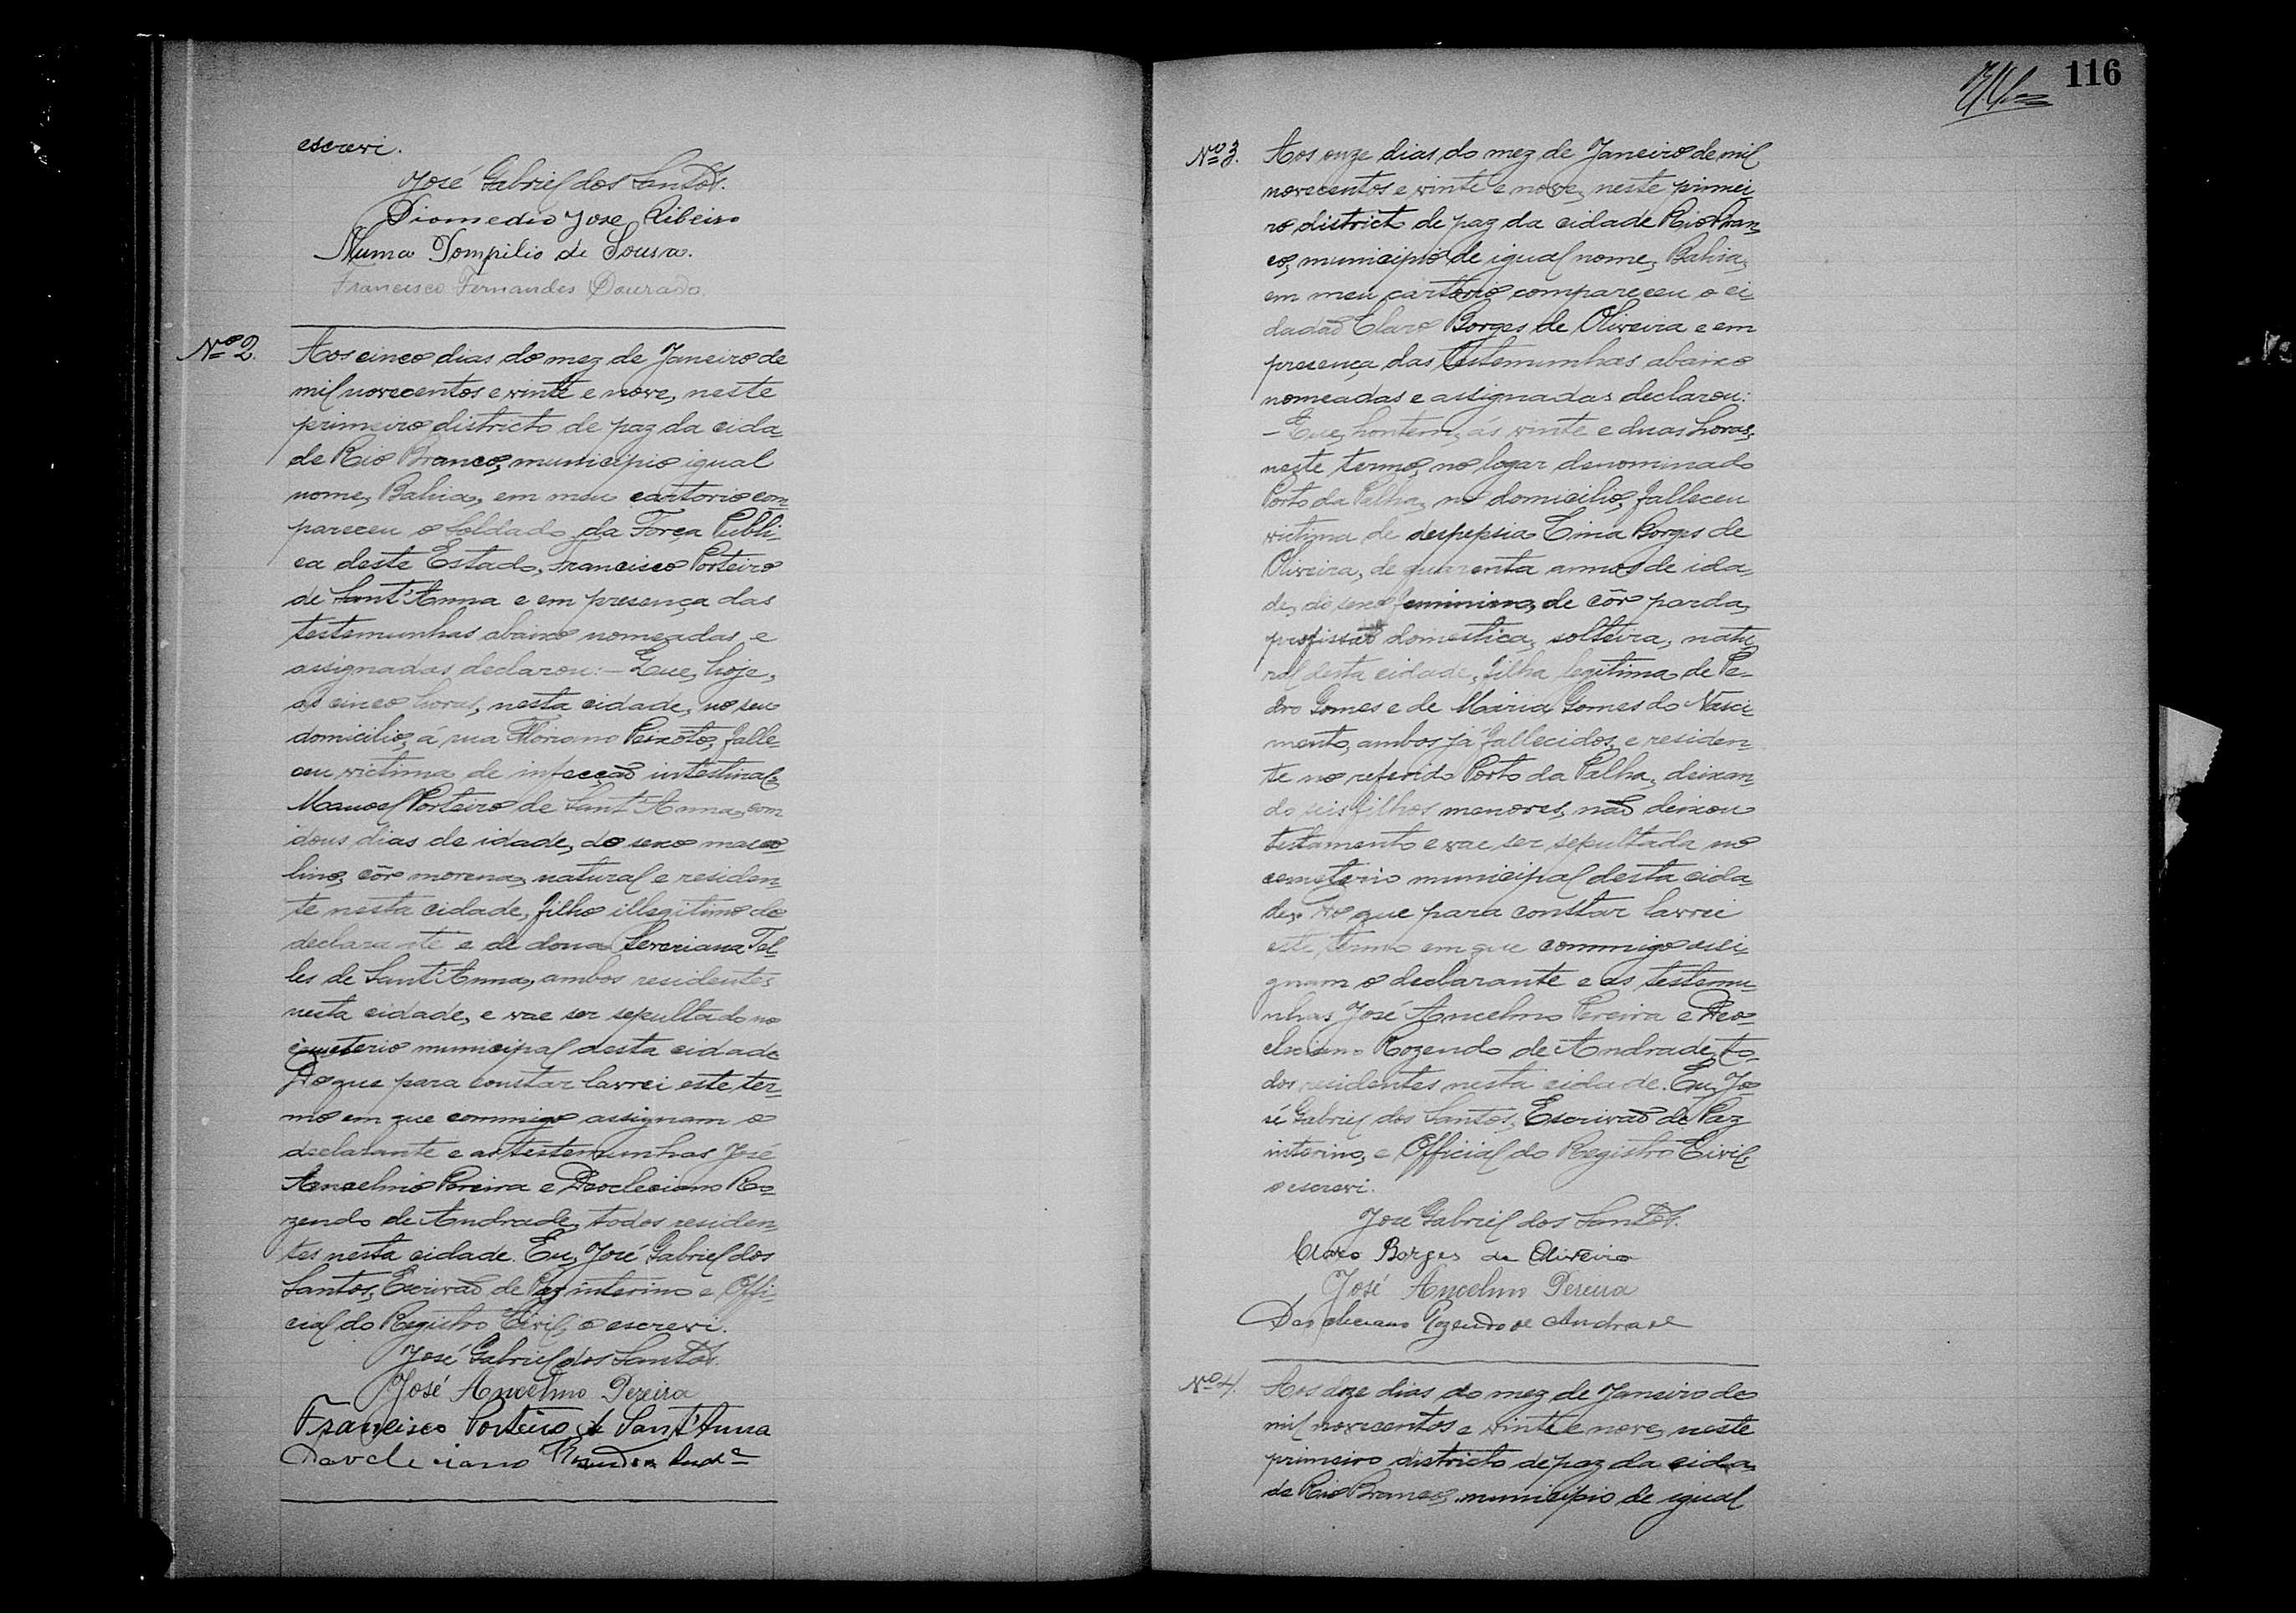 escrevi.
José Gabriel dos Santos.
Diomedio Jose Ribeiro
Numa Pompilio de Sousa.
Francisco Fernandes Dourado.
Nº 2. Aos cinco dias do mez de Janeiro de
mil novecentos e vinte e nove, neste
primeiro districto de paz da cida-
de Rio Branco, municipio igual
nome, Bahia, em meu cartorio com-
pareceu o soldado da Força Publi-
ca deste Estado, Francisco Porteiro
de Sant'Anna e em presença das
testemunhas abaixo nomeadas e
assignadas declarou: – Que, hoje,
as cinco horas, nesta cidade, no seu
domicilio, á rua Floriano Peixoto, falle-
ceu victima de infecção intestinal,
Manoel Porteiro de Sant'Anna, com
dous dias de idade, do sexo mascu-
lino, côr morena, natural e residen-
te nesta cidade, filho illegitimo do
declarante e de dona Severiana Tel-
les de Sant'Anna, ambos residentes
nesta cidade, e vae ser sepultado no
cemeterio municipal desta cidade
Do que para constar lavrei este ter-
mo em que commigo assignam o
declarante e as testemunhas José
Ancelmo Pereira e Deocleciano Ro-
zendo de Andrade, todos residen-
tes nesta cidade. Eu, José Gabriel dos
Santos, Escrivão de Paz interino e Offi-
cial do Registro Civil, o escrevi.
José Gabriel dos Santos.
José Ancelmo Pereira
Francisco Porteiro de Sant'Anna
Davcleciano
116
Nº 3. Aos onze dias do mez de Janeiro de mil
novecentos e vinte e nove, neste primei-
ro districto de paz da cidade Rio Bran-
co, municipio de igual nome, Bahia,
em meu cartorio compareceu o ci-
dadão Claro Borges de Oliveira e em
presença das testemunhas abaixo
nomeadas e assignadas declarou:
– Que, hontem, ás vinte e duas horas,
neste termo, no logar denominado
Porto da Palha, no domicilio, falleceu
victima de despepsia Borges de
Oliveira, de quarenta annos de ida-
de, do sexo feminino, de côr parda,
profissão domestica, solteira, natu-
ral desta cidade, filha legitima de Pe-
dro Gomes e de Maria Gomes do Nasci-
mento, ambos já fallecidos, e residen-
te no referido Porto da Palha, deixan-
do seis filhos menores, não deixou
testamento e vae ser sepultada no
cemeterio municipal desta cida-
de. Do que para constar lavrei
este termo em que commigo assi-
gnam o declarante e as testemu-
nhas José Ancelmo Pereira e Deo-
cleciano Rozendo de Andrade, to-
dos residentes nesta cidade. Eu, Jo-
sé Gabriel dos Santos, Escrivão de Paz
interino, e Official do Registro Civil,
o escrevi.
José Gabriel dos Santos.
Claro Borges de Oliveira
José Ancelmo Pereira
Daocleciano Rozendo de Andrade
Nº 4. Aos doze dias do mez de Janeiro de
mil novecentos e vinte e nove, neste
primeiro districto de paz da cida-
de Rio Branco, municipio de igual